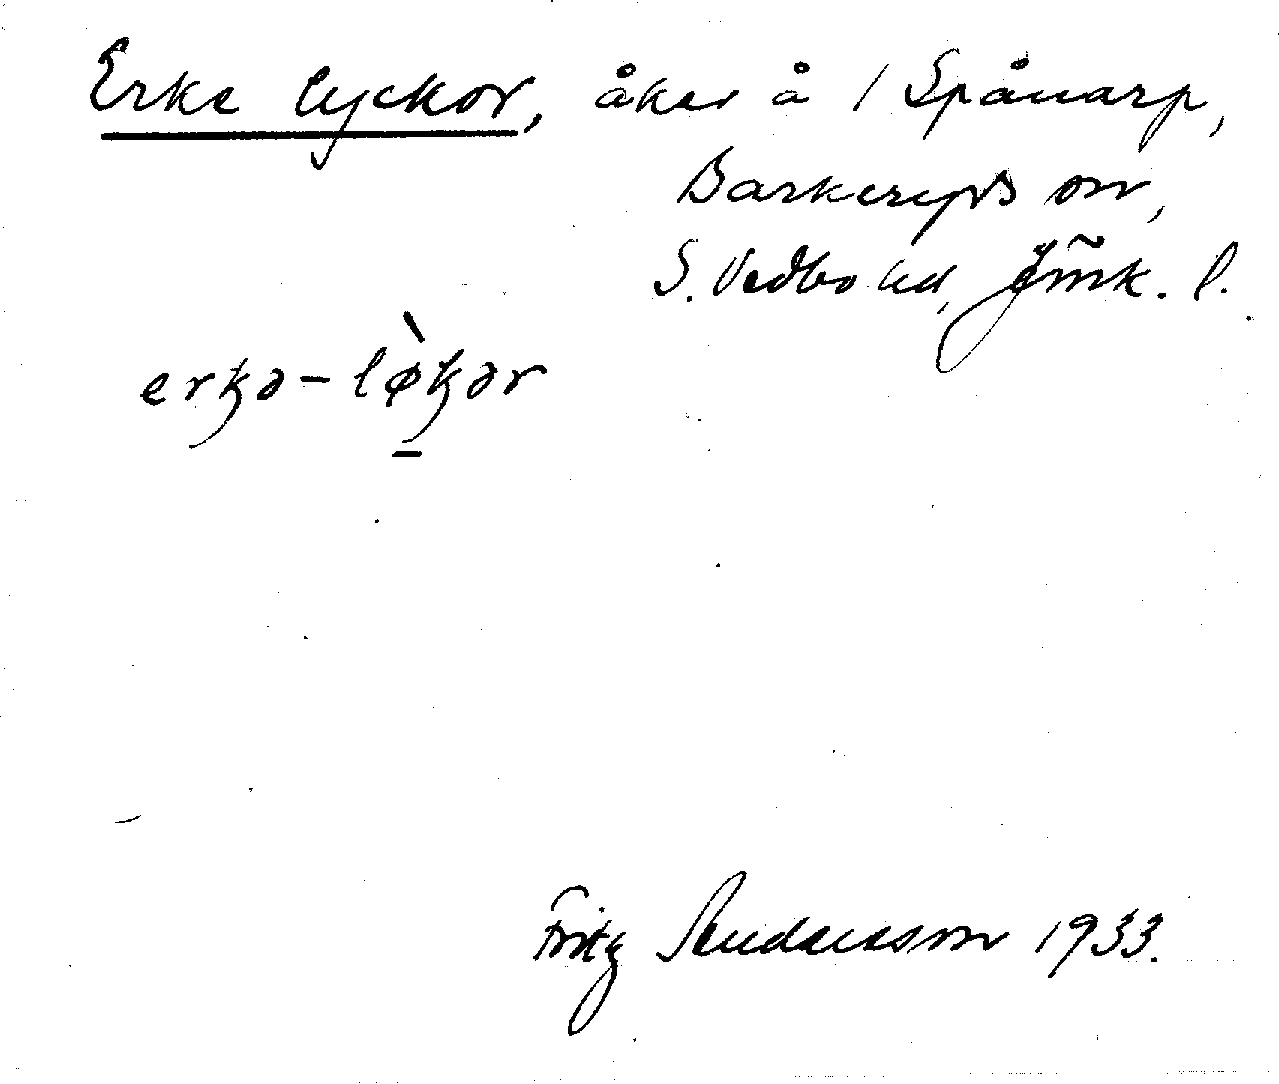 Erke lyckor, åker å 1 Spånarp,
Barkeryds sn,
S. Vedbo hd, Jmk. l.
erkə-lø̀kər
Fritz Andersson 1933.